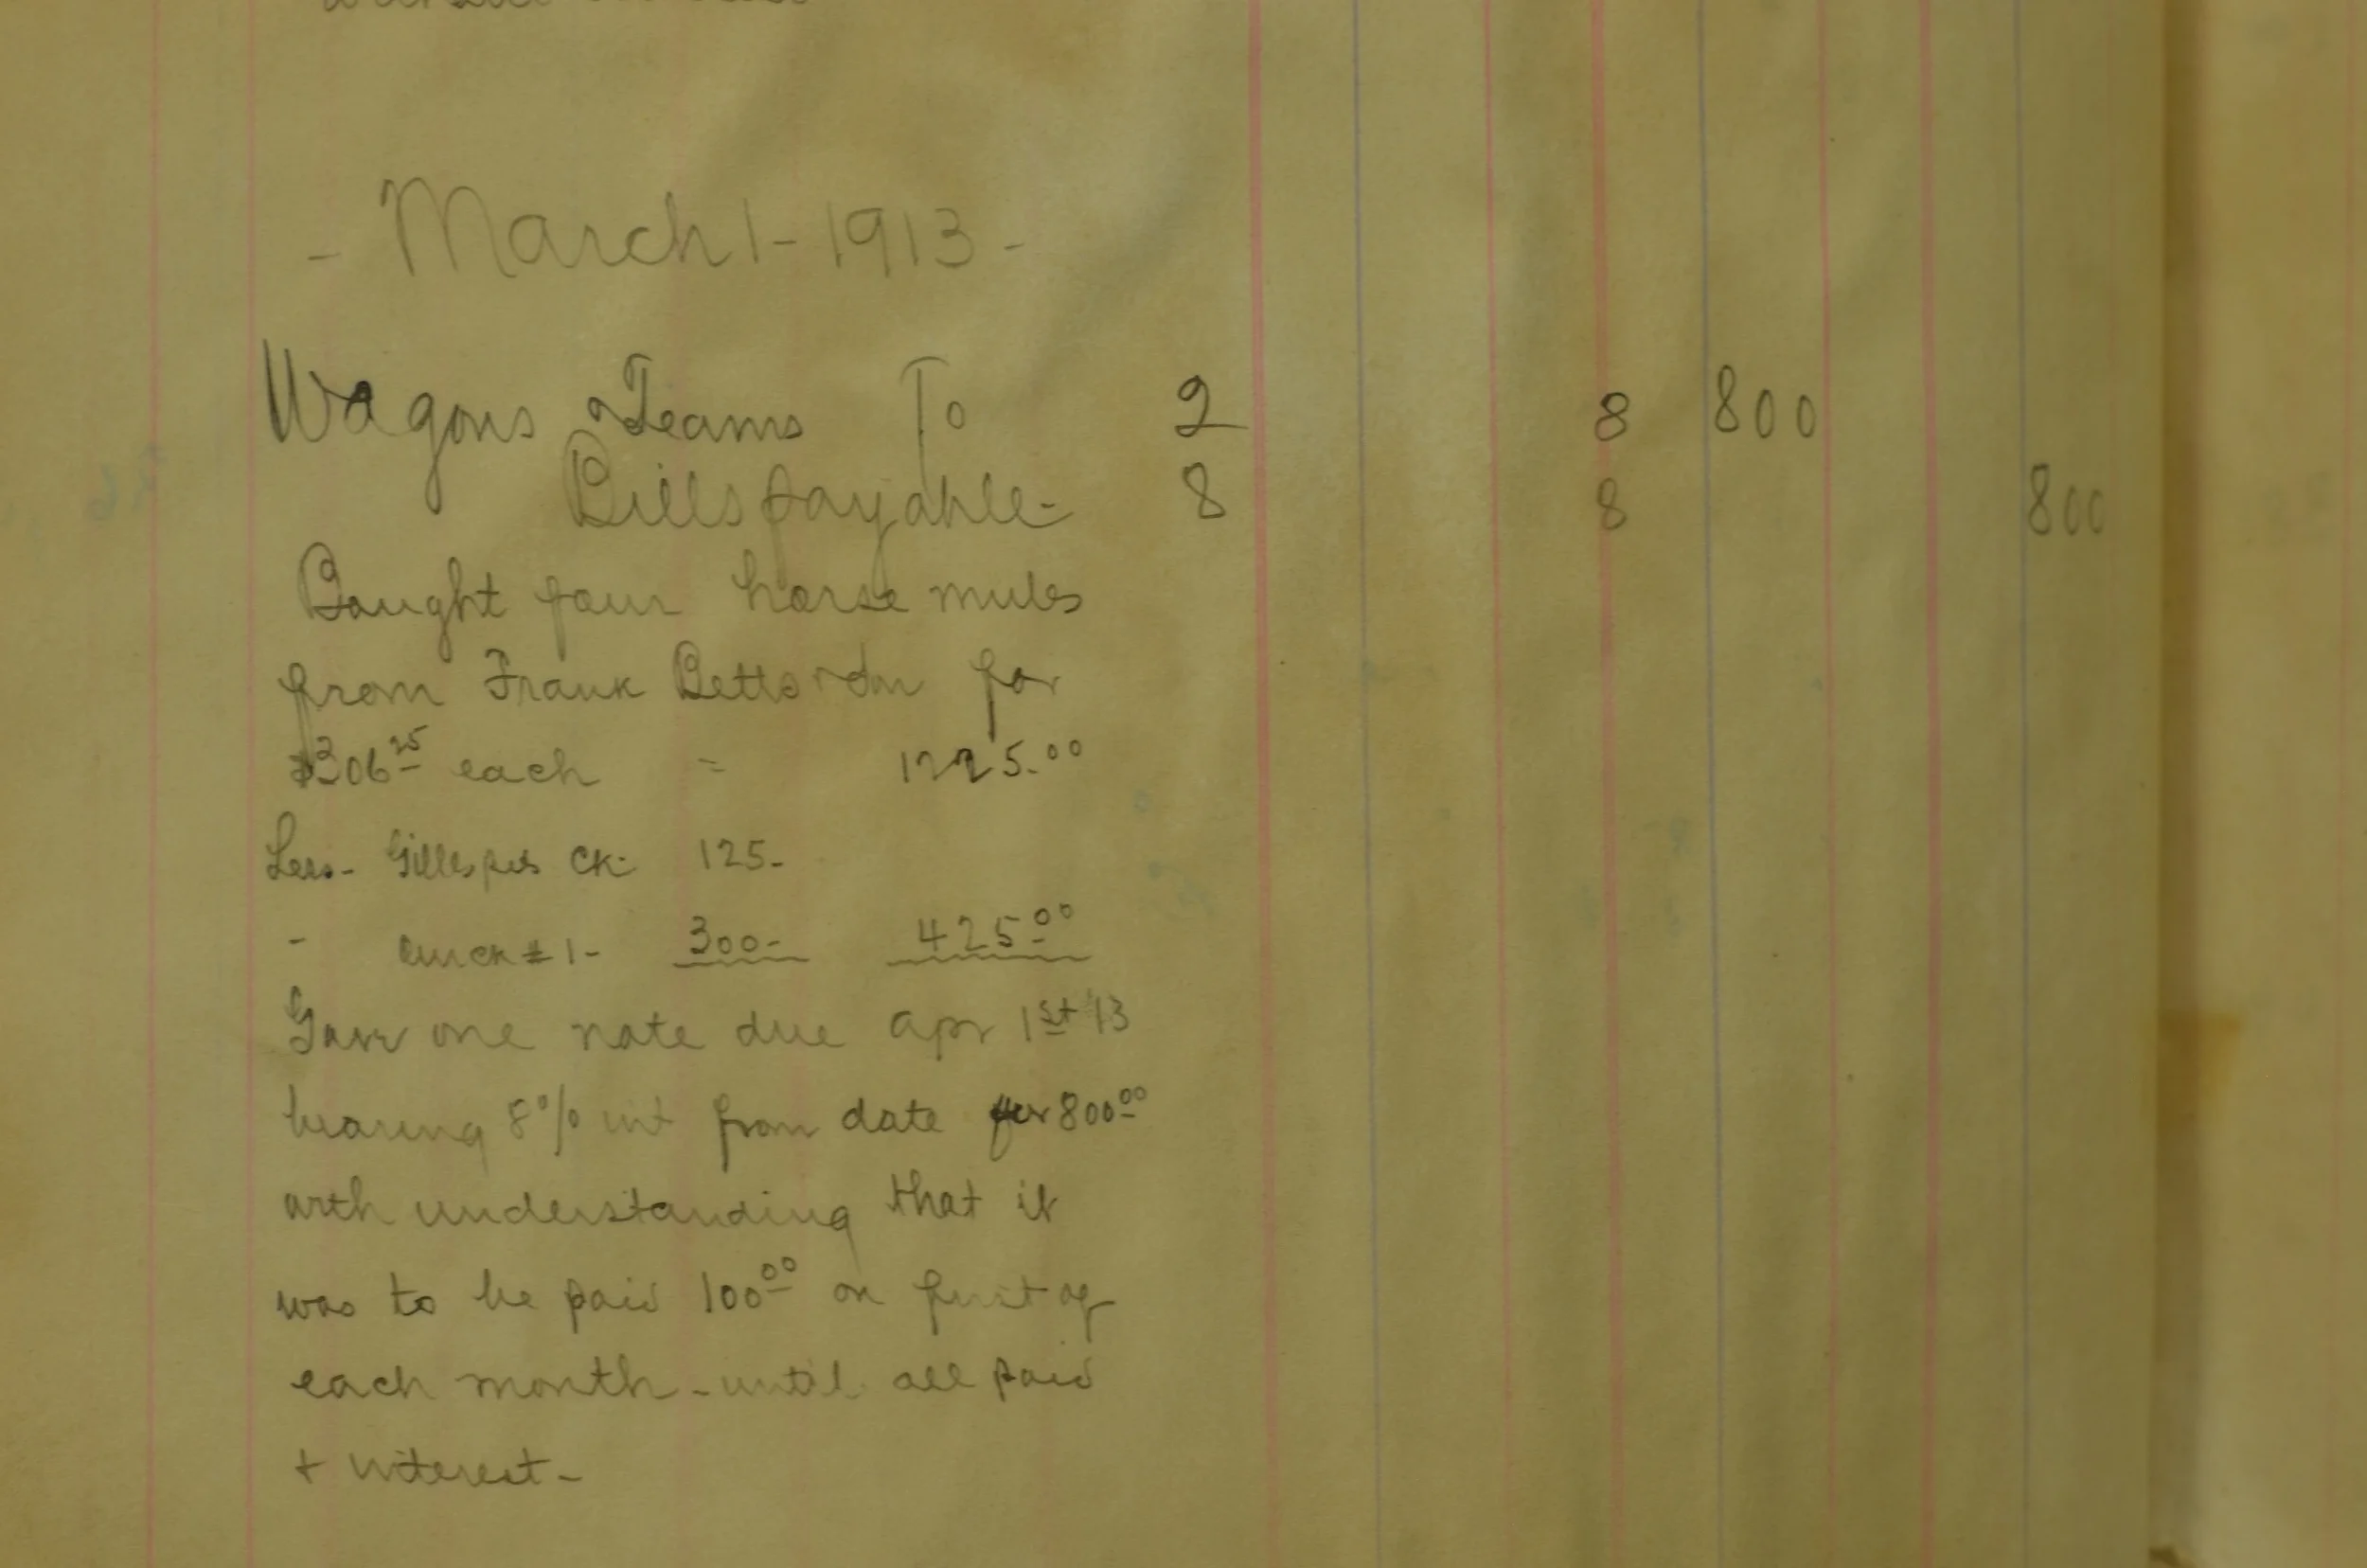 - March 1 - 1913 -
Wagons & Teams To 2 8 800
Bills payable - 8 8 800
Bought four horse mules
from Frank Betts for
$306 25 each = 1225.00
Less - Gillespies ck - 125 -
- our ck # 1 - 300 - 425 00
Gave one note due apr 1st 13
bearing 8% int from date for 800 00
with understanding that it
was to be paid 100 00 on first of
each month - until all paid
+ interest -